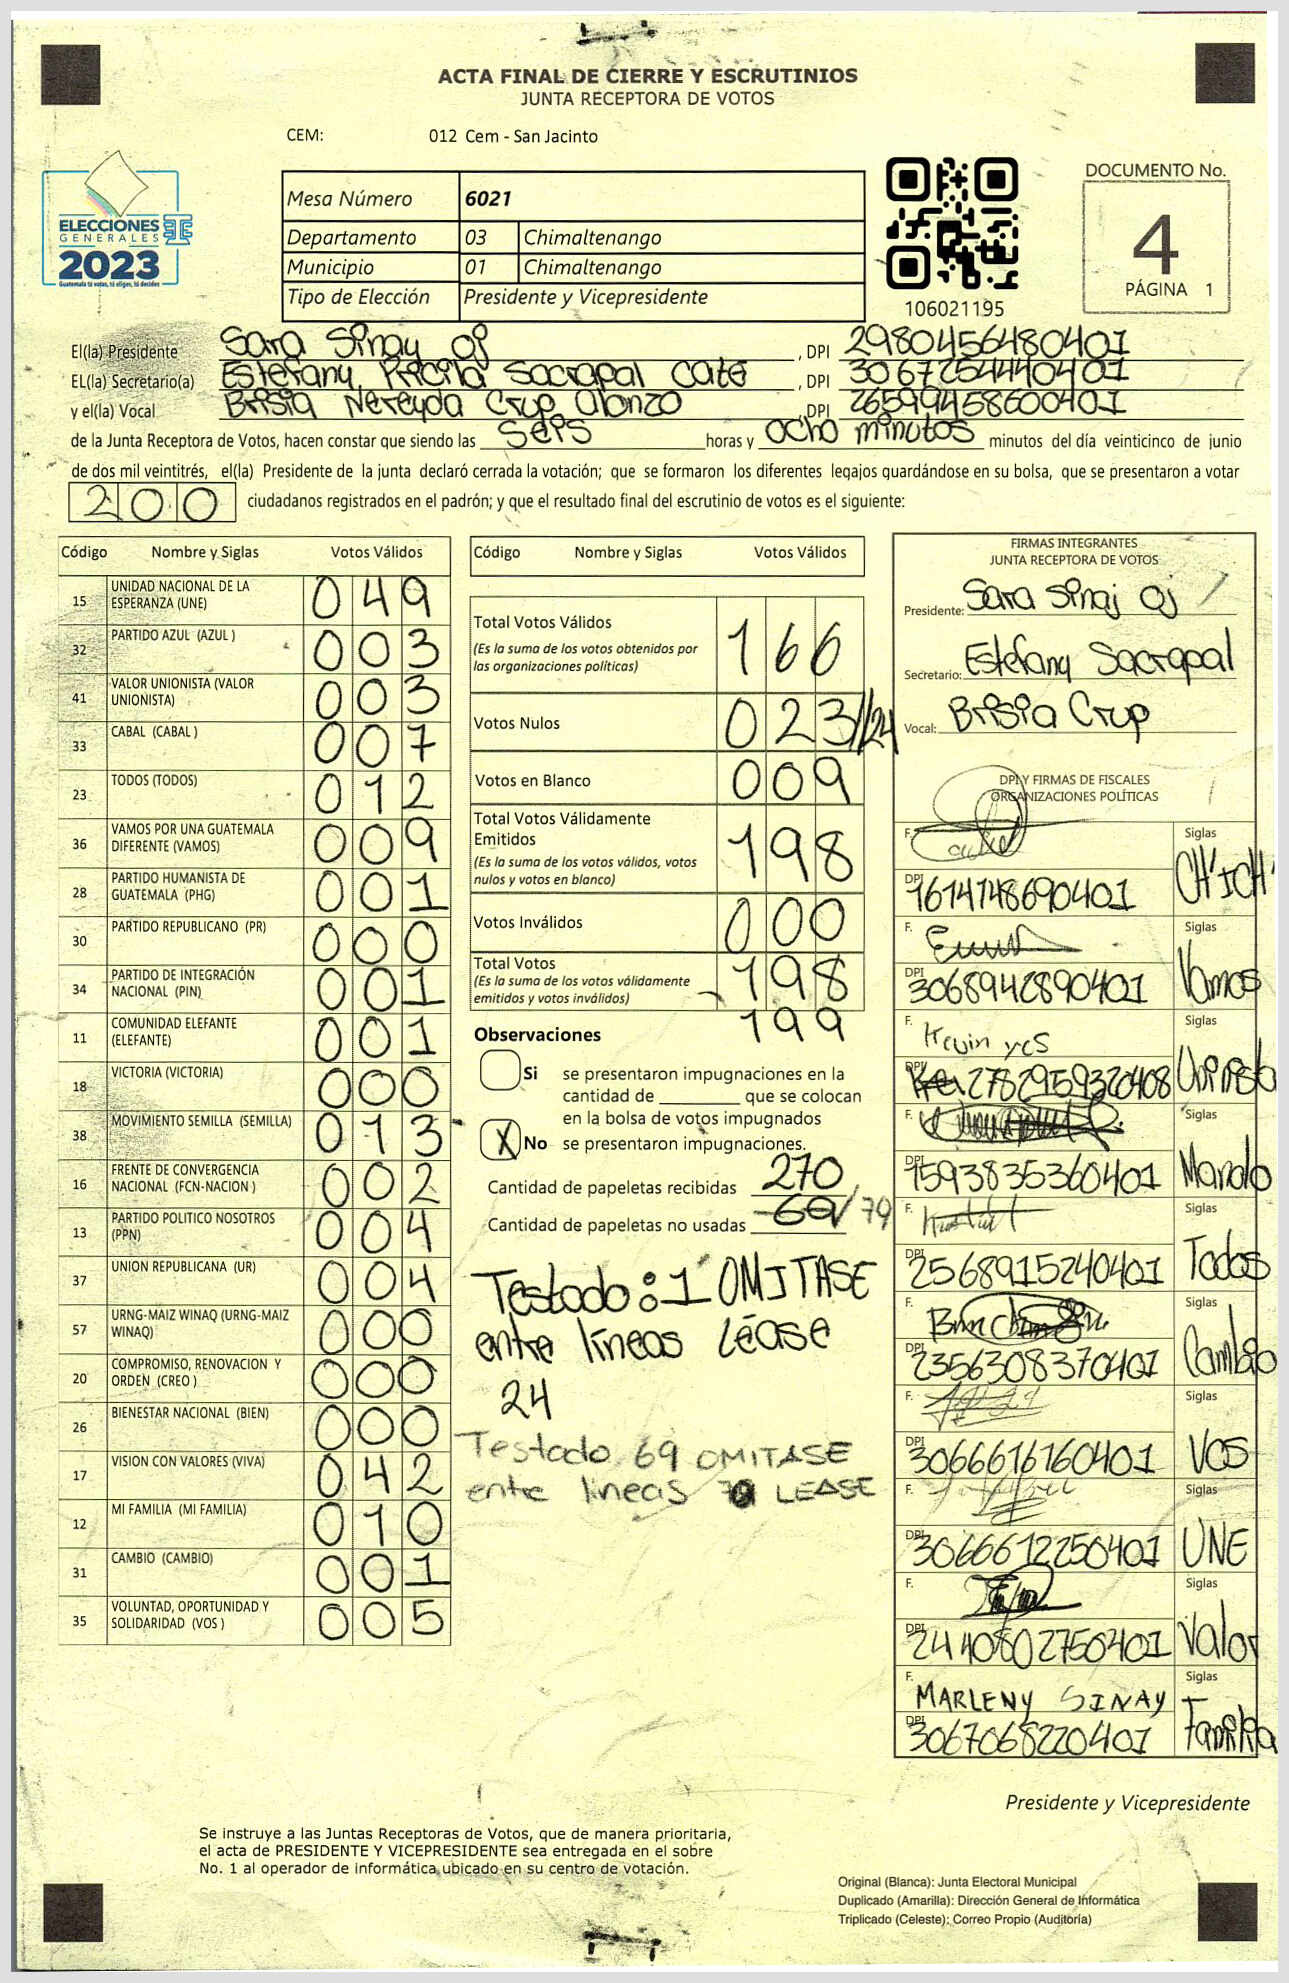 ACTA FINAL DE CIERRE Y ESCRUTINIOS
JUNTA RECEPTORA DE VOTOS
CEM: 012 Cem - San Jacinto
ELECCIONES
GENERALES
2023
Guatemala tú votas, tú eliges, tú decides
Mesa Número 6021
Departamento 03 Chimaltenango
Municipio 01 Chimaltenango
Tipo de Elección Presidente y Vicepresidente
106021195
DOCUMENTO No.
4
PÁGINA 1
El(la) Presidente Sara Sinay oj , DPI 2980456480401
EL(la) Secretario(a) Estefany Pricila Sacrapal Cate , DPI 3067254440401
y el(la) Vocal Brisia Nereyda Crup alonzo , DPI 2659945860401
de la Junta Receptora de Votos, hacen constar que siendo las seis horas y ocho minutos minutos del día veinticinco de junio
de dos mil veintitrés, el(la) Presidente de la junta declaró cerrada la votación; que se formaron los diferentes legajos guardándose en su bolsa, que se presentaron a votar
200 ciudadanos registrados en el padrón; y que el resultado final del escrutinio de votos es el siguiente:
Código Nombre y Siglas Votos Válidos
15 UNIDAD NACIONAL DE LA ESPERANZA (UNE) 049
32 PARTIDO AZUL (AZUL ) 003
41 VALOR UNIONISTA (VALOR UNIONISTA) 003
33 CABAL (CABAL ) 007
23 TODOS (TODOS) 012
36 VAMOS POR UNA GUATEMALA DIFERENTE (VAMOS) 009
28 PARTIDO HUMANISTA DE GUATEMALA (PHG) 001
30 PARTIDO REPUBLICANO (PR) 000
34 PARTIDO DE INTEGRACIÓN NACIONAL (PIN) 001
11 COMUNIDAD ELEFANTE (ELEFANTE) 001
18 VICTORIA (VICTORIA) 000
38 MOVIMIENTO SEMILLA (SEMILLA) 013
16 FRENTE DE CONVERGENCIA NACIONAL (FCN-NACION ) 002
13 PARTIDO POLITICO NOSOTROS (PPN) 004
37 UNION REPUBLICANA (UR) 004
57 URNG-MAIZ WINAQ (URNG-MAIZ WINAQ) 000
20 COMPROMISO, RENOVACION Y ORDEN (CREO ) 000
26 BIENESTAR NACIONAL (BIEN) 000
17 VISION CON VALORES (VIVA) 042
12 MI FAMILIA (MI FAMILIA) 010
31 CAMBIO (CAMBIO) 001
35 VOLUNTAD, OPORTUNIDAD Y SOLIDARIDAD (VOS ) 005
Código Nombre y Siglas Votos Válidos
Total Votos Válidos 166
(Es la suma de los votos obtenidos por
las organizaciones políticas)
Votos Nulos 023//24
Votos en Blanco 009
Total Votos Válidamente
Emitidos 198
(Es la suma de los votos válidos, votos
nulos y votos en blanco)
Votos Inválidos 000
Total Votos 198
(Es la suma de los votos válidamente
emitidos y votos inválidos)
199
Observaciones
Si se presentaron impugnaciones en la
cantidad de ________ que se colocan
en la bolsa de votos impugnados
X No se presentaron impugnaciones.
Cantidad de papeletas recibidas 270
Cantidad de papeletas no usadas 69/79
Testado: 1 OMITASE
entre líneas LÉASE
24
Testado 69 OMITASE
entre lineas LEASE
FIRMAS INTEGRANTES
JUNTA RECEPTORA DE VOTOS
Presidente: Sara Sinaj oj
Secretario: Estefany Sacrapal
Vocal: Brisia Crup
DPI Y FIRMAS DE FISCALES
ORGANIZACIONES POLÍTICAS
F. Siglas
DPI 1614148690401 CH'ICH'
F. Siglas
DPI 3068942890401 Vamos
F. Kevin yes Siglas
DPI 2782959320408 Unionista
F. Siglas
DPI 1593835360401 Mando
F. Siglas
DPI 2568915240401 Todos
F. Siglas
DPI 2356308370401 Cambio
F. Siglas
DPI 3066616160401 VOS
F. Siglas
DPI 3066612250401 UNE
F. Siglas
DPI 2440802750401 Valor
F. MARLENY SINAY Siglas
DPI 3067068220401 Familia
Presidente y Vicepresidente
Se instruye a las Juntas Receptoras de Votos, que de manera prioritaria,
el acta de PRESIDENTE Y VICEPRESIDENTE sea entregada en el sobre
No. 1 al operador de informática ubicado en su centro de votación.
Original (Blanca): Junta Electoral Municipal
Duplicado (Amarilla): Dirección General de Informática
Triplicado (Celeste): Correo Propio (Auditoría)